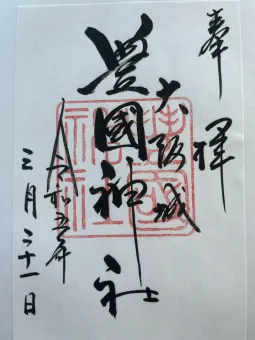 奉拝
大阪城
豊國神社
令和五年
三月三十一日